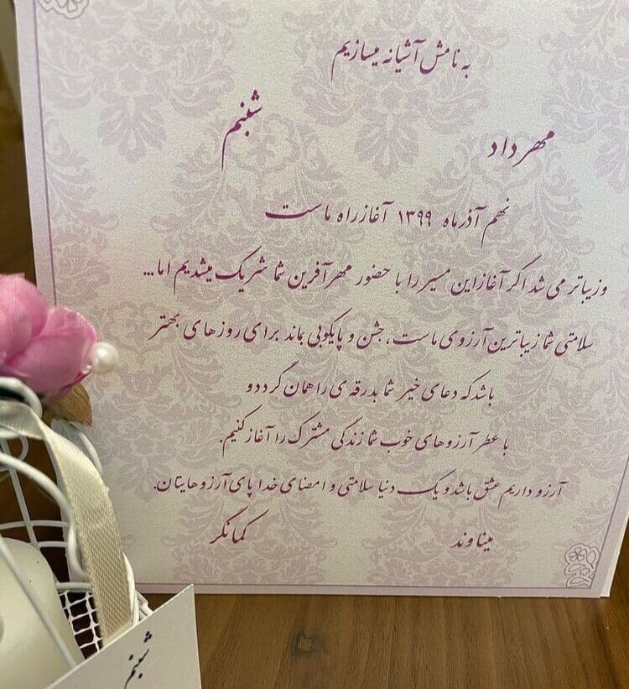 به نامش آشیانه میسازیم
شبنم
مهرداد
نهم آذرماه ۱۳۹۹ آغاز راه ماست
و زیباتر می شد اگر آغاز این مسیر را با حضور مهرآفرین شما شریک میشدیم اما...
سلامتی شما زیباترین آرزوی ماست، جشن و پایکوبی بماند برای روزهای بهتر
باشد که دعای خیر شما بدرقه ی راهمان گردد و
با عطر آرزوهای خوب شما زندگی مشترک را آغاز کنیم.
آرزو داریم عشق باشد و یک دنیا سلامتی و امضای خدا پای آرزوهایتان.
میناوند
کمانگر
شبنم